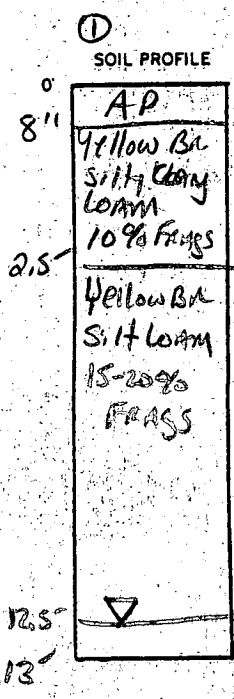 ①
SOIL PROFILE
0'
AP
8"
Yellow BR
Silty Clay
Loam
10% Frags
2.5'
Yellow BR
Silt Loam
15-20%
FRAGS
12.5'
13'